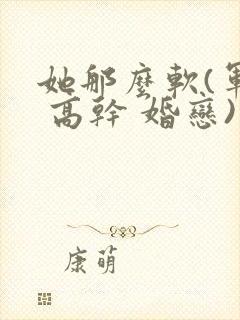 她那麼軟(軍
高幹 婚戀)
康萌